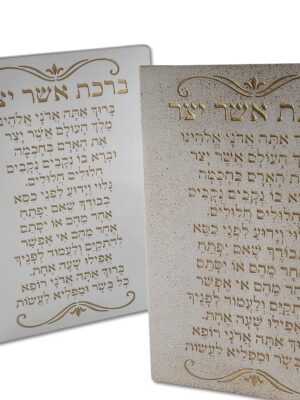 ברכת אשר יצ
בָּרוּךְ אַתָּה אֲדֹנָי אֱלֹהֵינוּ
מֶלֶךְ הָעוֹלָם אֲשֶׁר יָצַר
אֶת הָאָדָם בְּחָכְמָה
וּבָרָא בוֹ נְקָבִים נְקָבִים
חֲלוּלִים חֲלוּלִים.
גָּלוּי וְיָדוּעַ לִפְנֵי כִסֵּא
כְבוֹדֶךָ שֶׁאִם יִפָּתֵחַ
אֶחָד מֵהֶם אוֹ יִסָּתֵם
אֶחָד מֵהֶם אִי אֶפְשָׁר
לְהִתְקַיֵּם וְלַעֲמוֹד לְפָנֶיךָ
אֲפִילּוּ שָׁעָה אֶחָת.
בָּרוּךְ אַתָּה אֲדֹנָי רוֹפֵא
כָל בָּשָׂר וּמַפְלִיא לַעֲשׂוֹת
אשר יצר
אַתָּה אֲדֹנָי אֱלֹהֵינוּ
הָעוֹלָם אֲשֶׁר יָצַר
הָאָדָם בְּחָכְמָה
בוֹ נְקָבִים נְקָבִים
חֲלוּלִים חֲלוּלִים.
וְיָדוּעַ לִפְנֵי כִסֵּא
כְבוֹדֶךָ שֶׁאִם יִפָּתֵחַ
אֶחָד מֵהֶם אוֹ יִסָּתֵם
אֶחָד מֵהֶם אִי אֶפְשָׁר
וְלַעֲמוֹד לְפָנֶיךָ
אֲפִילּוּ שָׁעָה אֶחָת.
אַתָּה אֲדֹנָי רוֹפֵא
בָּשָׂר וּמַפְלִיא לַעֲשׂוֹת